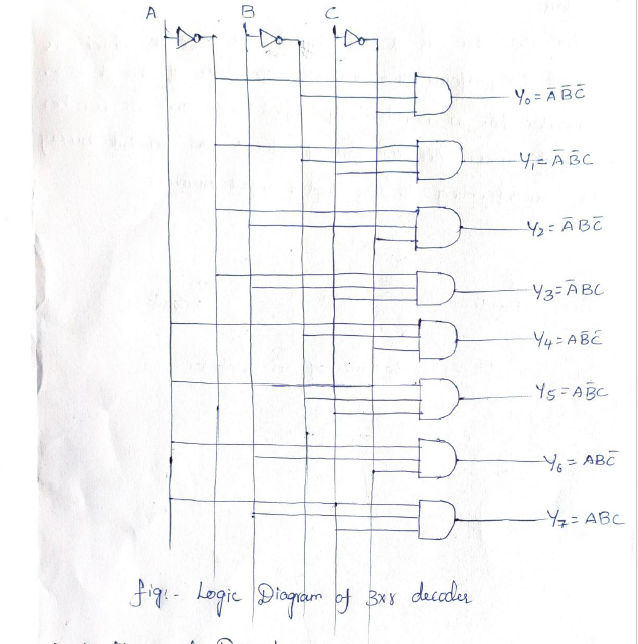 A B C
Y0 = A̅ B̅ C̅
Y1 = A̅ B̅ C
Y2 = A̅ B C̅
Y3 = A̅ B C
Y4 = A B̅ C̅
Y5 = A B̅ C
Y6 = A B C̅
Y7 = A B C
fig:- Logic Diagram of 3x8 decoder